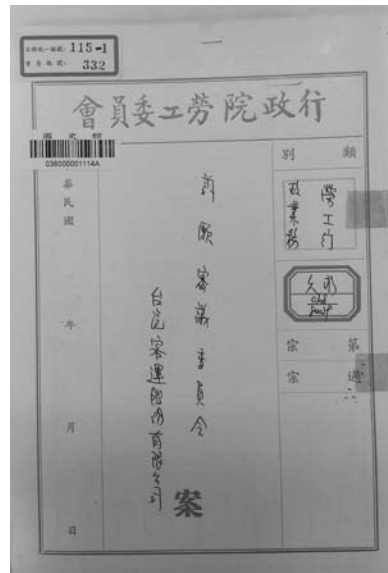 115-1
332
一
行政院勞工委員會
國史館
036000001114A
類別
勞工行
政業務
永久
第 宗
宗
訴願審議委員會
台汽客運股份有限公司
案
華民國
年
月
日